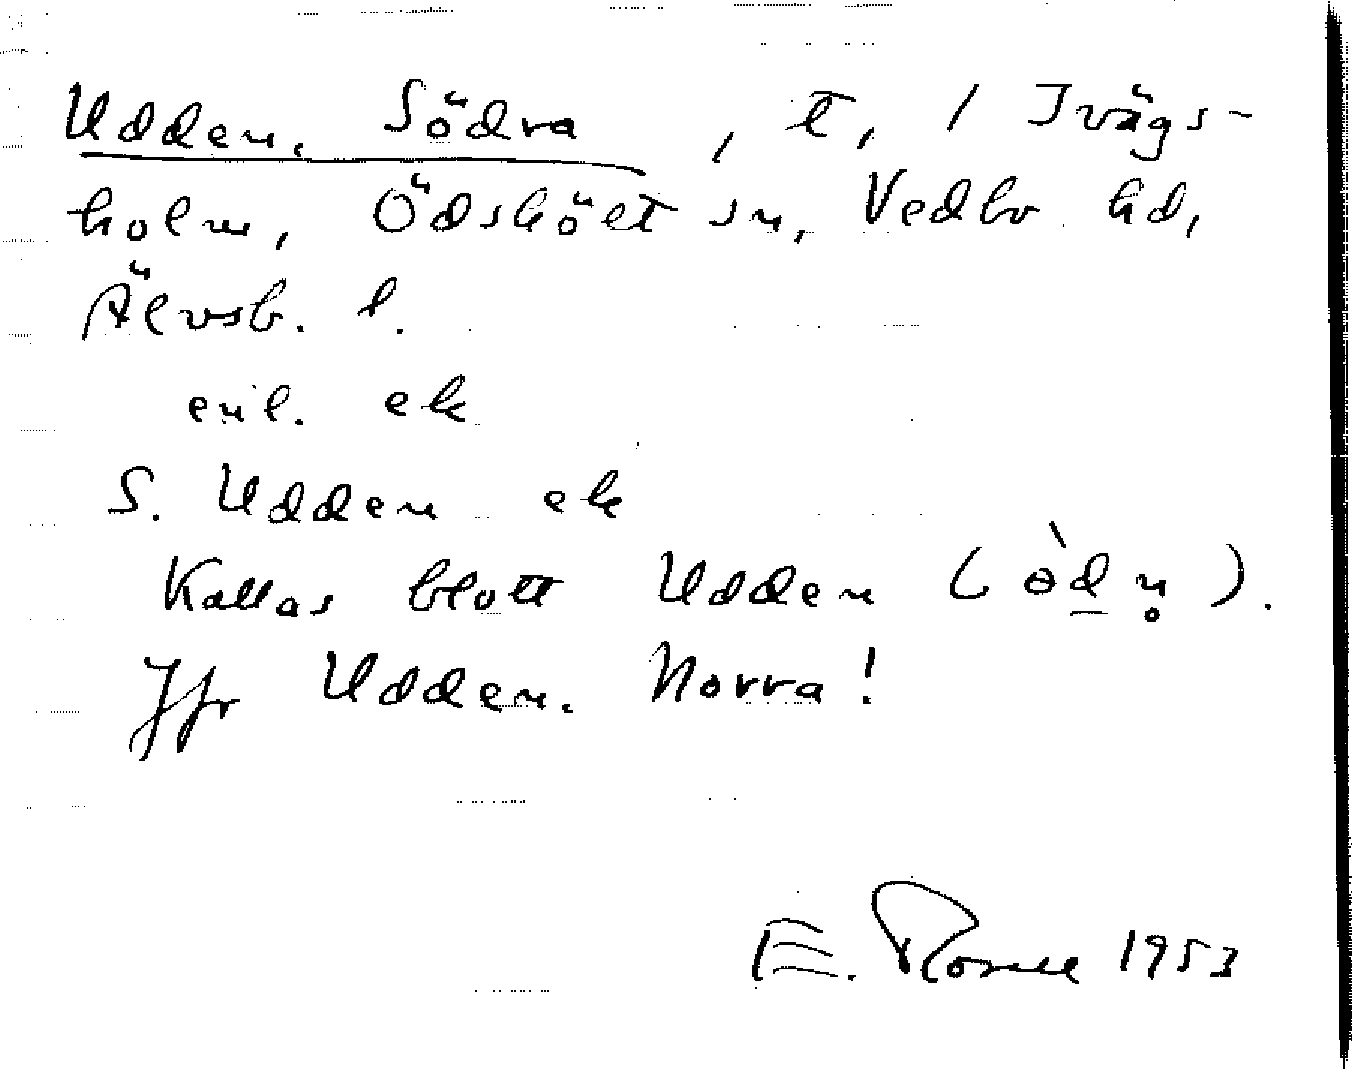 Udden, Södra, t, / Ivägs-
holm, Ödskölt sn, Vedbo hd,
Älvsb. l.
enl. ek
S. Udden ek
Kallas blott Udden (òdn̥).
Jfr Udden. Norra!
E. 1953